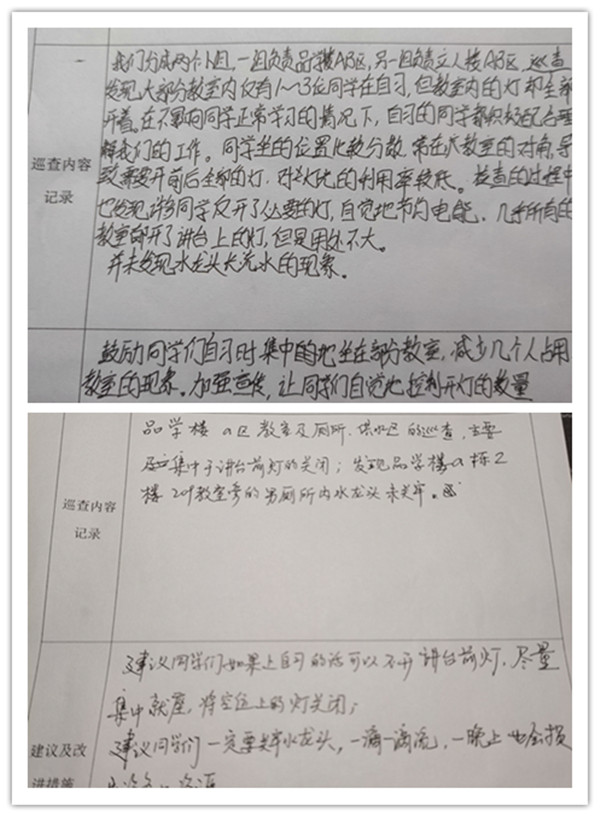 我们分成两个小组，一组负责品学楼AB区，另一组负责立人楼AB区，巡查
发现大部分教室内仅有1~3位同学在自习，但教室内的灯却全部
开着。在不影响同学正常学习的情况下，自习的同学都积极配合理
解我们的工作。同学坐的位置比较分散，常在大教室的对角，导
致需要开前后全部的灯，对灯的利用率较低。检查的过程中
也发现许多同学仅开了必要的灯，自觉地节约电能，几乎所有的
教室都开了讲台上的灯，但是用处不大。
并未发现水龙头长流水的现象。
巡查内容
记录
鼓励同学们自习时集中的地坐在部分教室，减少几个人占用
教室的现象。加强宣传，让同学们自觉地控制开灯的数量
品学楼a区教室及厕所、供水区的巡查，主要
集中于讲台前灯的关闭；发现品学楼a栋2
楼209教室旁的男厕所内水龙头未关牢。
巡查内容
记录
建议同学们如果上自习的话可以不开讲台前灯，尽量
集中就座，将空位上的灯关闭；
建议同学们一定要关牢水龙头，一滴一滴流，一晚上也会损
建议及改
进措施